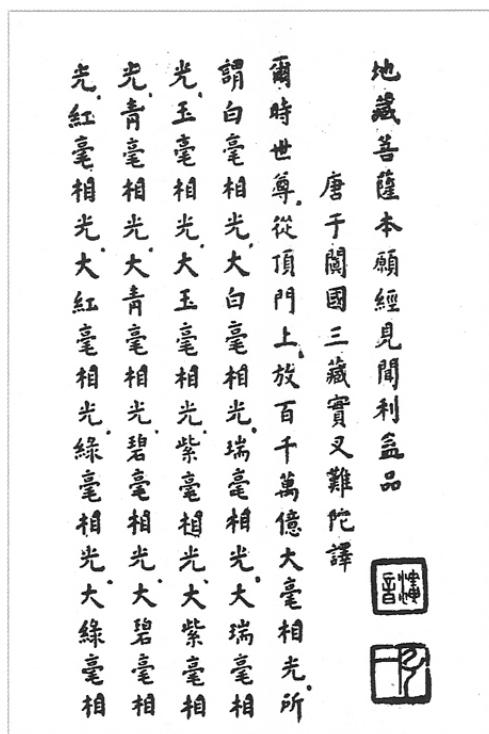 地藏菩薩本願經見聞利益品
唐于闐國三藏實叉難陀譯
爾時世尊。從頂門上。放百千萬億大毫相光。所
謂白毫相光。大白毫相光。瑞毫相光。大瑞毫相
光。玉毫相光。大玉毫相光。紫毫相光。大紫毫相
光。青毫相光。大青毫相光。碧毫相光。大碧毫相
光。紅毫相光。大紅毫相光。綠毫相光。大綠毫相